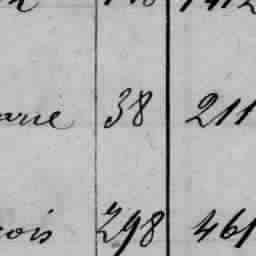 arie 38 211
çois 298 461